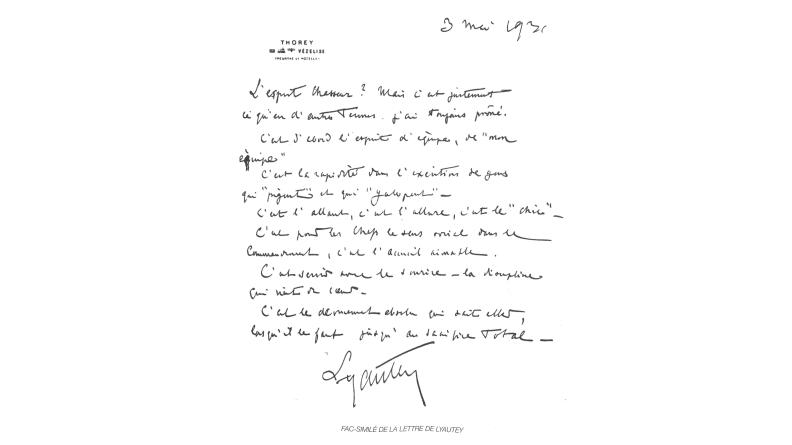 3 mai 1931
THOREY
VÉZELISE
MEURTHE ET MOSELLE
L'esprit chasseur ? Mais c'est justement
ce qu'en d'autres termes j'ai toujours prôné.
C'est d'abord l'esprit d'équipe, de "mon
équipe"
C'est la rapidité dans l'exécution de gens
qui "pigent" et qui "galopent" –
C'est l'allant, c'est l'allure, c'est le "chic" –
C'est pour les chefs le sens social dans le
Commandement, c'est l'accueil aimable.
C'est servir avec le sourire – la discipline
qui vient du cœur –
C'est le dévouement absolu qui sait aller,
lorsqu'il le faut jusqu'au sacrifice total –
Lyautey
FAC-SIMILÉ DE LA LETTRE DE LYAUTEY